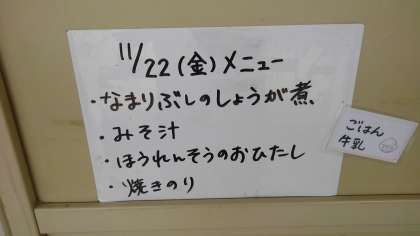 11/22(金)メニュー
・なまりぶしのしょうが煮
・みそ汁
・ほうれんそうのおひたし
・焼きのり
ごはん
牛乳